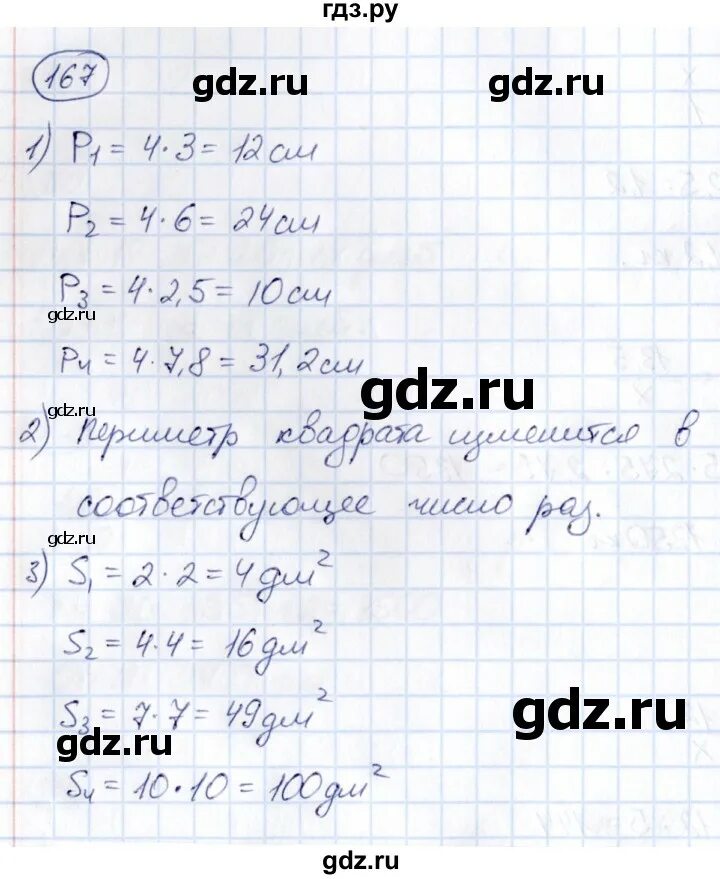 гдз.ру
167
gdz.ru gdz.ru
1) P1 = 4·3 = 12 см
P2 = 4·6 = 24 см
P3 = 4·2,5 = 10 см
gdz.ru
P4 = 4·7,8 = 31,2 см
gdz.ru
gdz.ru
2) Периметр квадрата изменится в
соответствующее число раз.
gdz.ru
3) S1 = 2·2 = 4 дм²
S2 = 4·4 = 16 дм²
S3 = 7·7 = 49 дм²
gdz.ru
gdz.ru
S4 = 10·10 = 100 дм²
gdz.ru